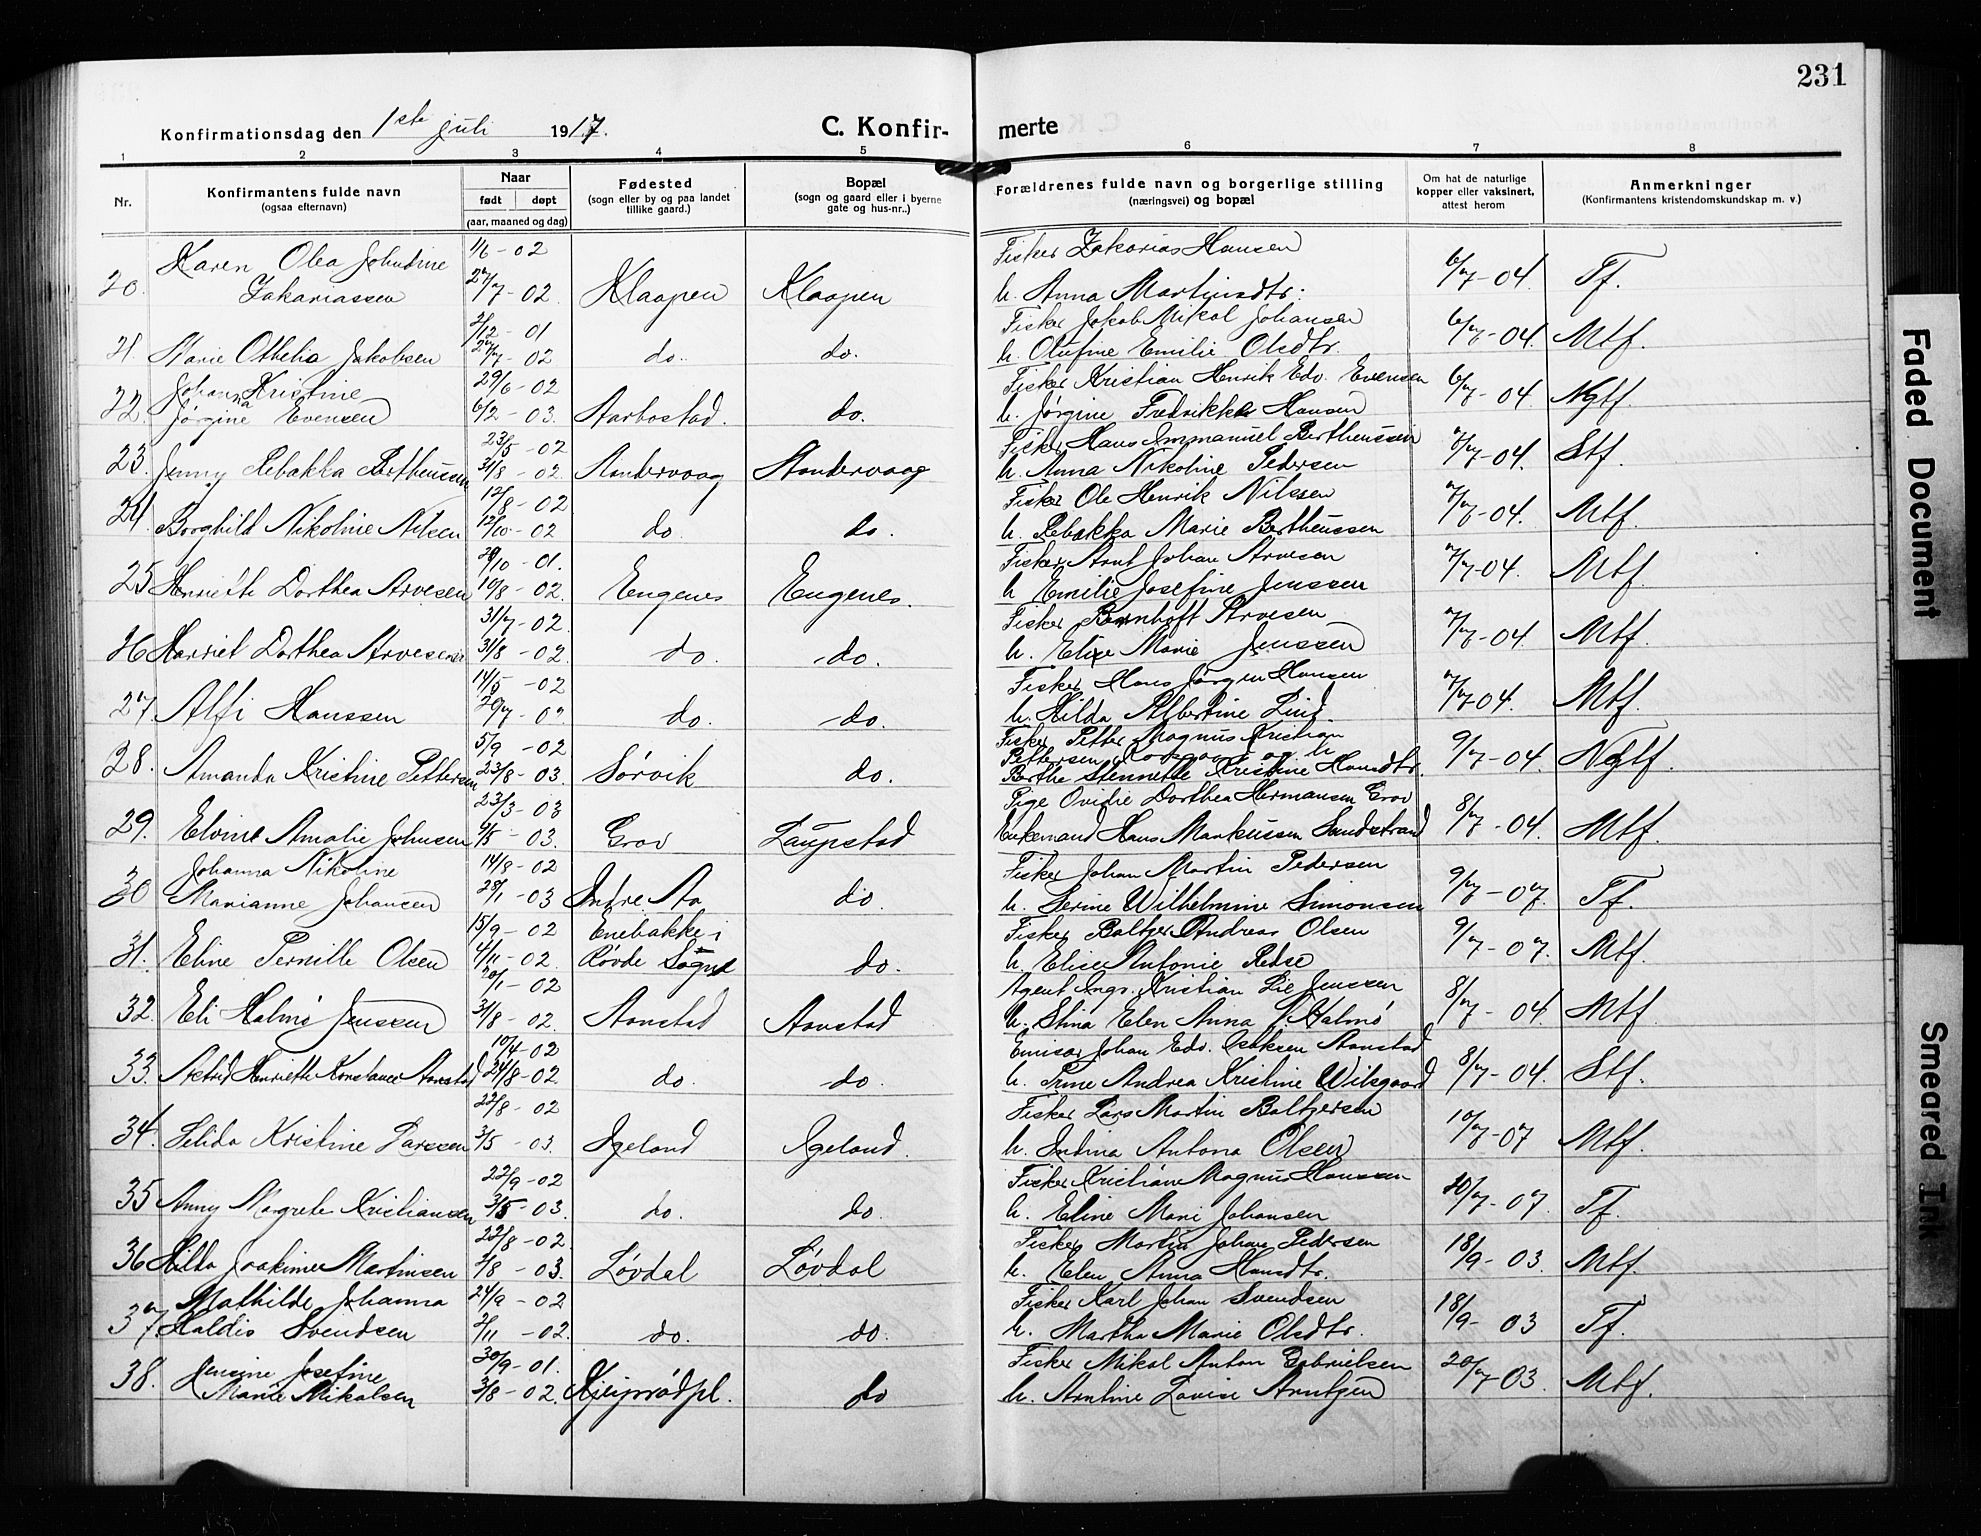 231
Konfirmationsdag den 1ste juli 1917.
C. Konfir-
merte
1 2 3 4 5 6 7 8
Nr.
Konfirmantens fulde navn
(ogsaa efternavn)
Naar
født døpt
(aar, maaned og dag)
Fødested
(sogn eller by og paa landet
tillike gaard.)
Bopæl
(sogn og gaard eller i byerne
gate og hus-nr..)
Forældrenes fulde navn og borgerlige stilling
(næringsvei) og bopæl
Om hat de naturlige
kopper eller vaksinert,
attest herom
Anmerkninger
(Konfirmantens kristendomskundskap m. v.)
Karen Olea Johndine 1/6-02 Fisker Zakarias Hansen
20. Zakariassen 27/7-02 Klaapen Klaapen h. Anna Martinsdtr: 6/7-04 Tf.
2/12-01 Fisker Jakob Mikal Johansen
21. Marie Othelia Jakobsen 27/7-02 do. do. h. Olufine Emilie Olsdtr. 6/7-04 Mtf.
Johanna Kristine 29/6-02 Fisker Kristian Henrik Edv. Evensen
22. Jørgine Evensen 6/2-03. Aarbostad. do. h. Jørgine Fredrikke Hansen 6/7-04 Ngtf.
23/5-02 Fisker Hans Immanuel Bertheussen
23. Jenny Rebakka Bertheussen 31/8-02. Aandervaag Aandervaag h. Anna Nikoline Pedersen 7/7-04. Stf.
12/8-02 Fisker Ole Henrik Nilssen
24. Borghild Nikoline Nilsen 12/10-02 do do. h. Rebakka Marie Bertheussen 7/7-04. Mtf.
29/10-01. Fisker Arnt Johan Arvesen
25 Henriette Dorthea Arvesen 10/8-02. Engenes Engenes. h Emilie Josefine Jenssen 7/7-04. Mtf.
31/7-02. Fisker Bernhoft Arvesen
26 Harriet Dorthea Arvesen 31/8-02. do. do. h. Elise Marie Jenssen 7/7-04 Mtf.
14/5-02 Fisker Hans Jørgen Hansen
27. Alfi Hanssen 20/7-02. do. do. h. Hilda Albertine Lind. 7/7-04. Mtf.
5/9-02 Fisker Petter Magnus Kristian
Pettersen og h
28. Amanda Kristine Pettersen 23/8-03. Sørvik do. Berthe Stennette Kristine Hansdtr. 9/7-04. Ngtf.
23/3-03 Pige Ovidie Dorthea Hermansen Grov
29. Elvine Amalie Johnsen 9/5-03. Grov Laupstad Enkemand Hans Markussen Sandstrand 8/7-04. Mtf.
Johanna Nikoline 14/8-02 Fisker Johan Martin Pedersen
30 Marianne Johansen 28/1-03 Indre Aa do. h. Serine Wilhelmine Simonsen 9/7-07. Tf.
15/9-02 Enebakke i Fisker Baltzer Andreas Olsen
31. Eline Pernille Olsen 4/11-02. Røvde Sogn do. h Elise Antonie Reise 9/7-07. Mtf.
20/1-02 Agent Ingv. Kristian Lie Jenssen
32. Eli Halmø Jenssen 31/8-02. Aanstad Aanstad h. Stina Elen Anna Halmø 8/7-04 Mtf.
10/4-02 Emisær Johan Edv. Isaksen Aanstad
33. Astrid Henriette Konstance Aanstad 24/8-02 do. do. h. Trine Andrea Kristine Wilsgaard 8/7-04. Stf.
22/8-02 Fisker Lars Martin Baltzersen
34. Selida Kristine Larssen 3/5-03. Igeland Igeland. h. Indina Antona Olsen 10/7-07 Mtf.
22/9-02 Fisker Kristian Magnus Hanssen
35 Anny Magrete Kristiansen 3/5-03. do. do. h. Eline Marie Johansen 10/7-07. Tf.
22/8-02. Fisker Martin Johan Pedersen
36 Hilda Joakime Martinsen 2/8-03. Løvdal Løvdal h. Elen Anna Hansdtr. 18/9-03. Mtf.
Mathilde Johanna 24/9-02 Fisker Karl Johan Svendsen
37. Haldis Svendsen 2/11-02. do. do. h. Martha Marie Olsdtr. 18/9-03 Tf.
Jensine Josefine 30/9-01. Fisker Mikal Anton Gabrielsen
38. Marie Mikalsen 3/8-02. do h. Arntine Lovise Arntzen 20/7-03. Mtf.
Faded Document
Smeared Ink